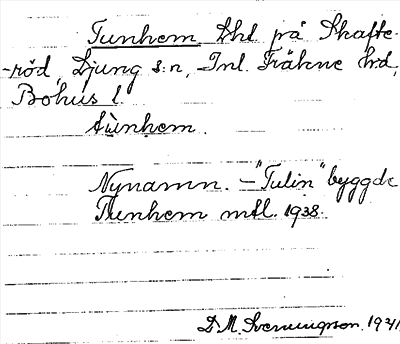 Tunhem Lht på Skafte-
-röd, Ljung s:n, Inl. Fräkne hd,
Bohus l.
tùnhem.
Nynamn. – "Tulin" byggde
Tunhem mtl. 1938.
D. M. Svenningson. 1941